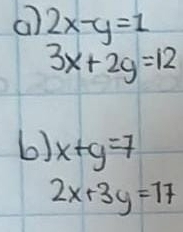 a) 2x-y=1
3x+2y=12
b) x+y=7
2x+3y=17